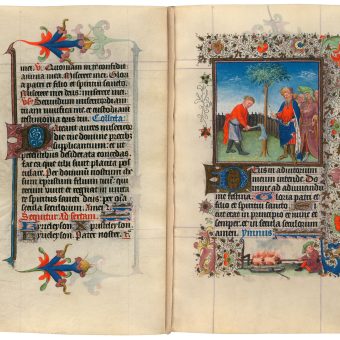 mei. V. Quoniam in te confidit
anima mea. Miserere mei. Gloria
patri et filio et spiritui sancto.
Miserere mei deus: miserere mei.
V. Secundum misericordi
am tuam vivifica me: et custodiam
testimonia oris tui. Collecta.
aures misericordie
tue domine precibus
supplicantium: et ut
petentibus desiderata concedas.
fac eos que tibi placita sunt postu
lare. Per dominum nostrum ihe
sum christum filium tuum, qui te
cum vivit et regnat in unitate
spiritus sancti deus. per omnia
secula seculorum. Amen.
Sequitur Ad sextam.
Kyrieleyson. Xpriste
leyson. Kyrieleyson. Pater noster.
Deus in adiutorium
meum intende. Do
mine ad adiuvandum
me festina. Gloria patri et
filio et spiritui sancto. Si
cut erat in principio et nunc et
semper. et in secula seculorum
amen. Ympnus.